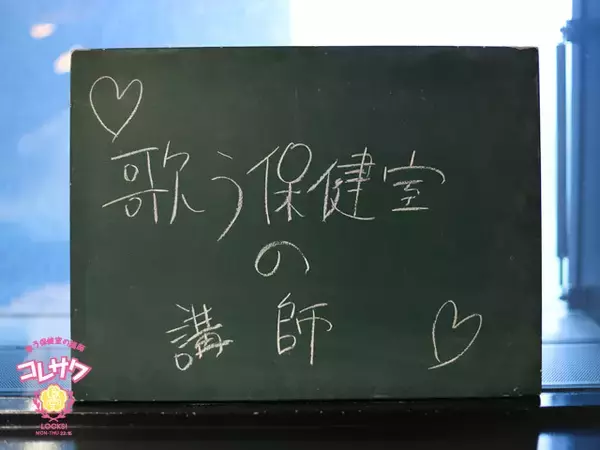 歌う保健室
の
講師
歌う保健室の講師
コレサク
LOCKS!
MON-THU 23:15